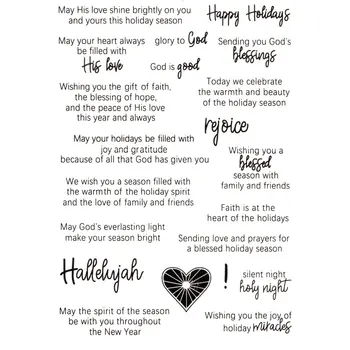 May His love shine brightly on you
and yours this holiday season
Happy Holidays
May your heart always
be filled with
His love
glory to God
God is good
Sending you God's
blessings
Wishing you the gift of faith,
the blessing of hope,
and the peace of His love
this year and always
Today we celebrate
the warmth and beauty
of the holiday season
rejoice
May your holidays be filled with
joy and gratitude
because of all that God has given you
Wishing you a
blessed
season with
family and friends
We wish you a season filled
with the warmth of holiday spirit
and the love of family and friends
Faith is at the
heart of the holidays
May God's everlasting light
make your season bright
Sending love and prayers for
a blessed holiday season
Hallelujah
!
silent night
holy night
May the spirit of the season
be with you throughout
the New Year
Wishing you the joy of
holiday miracles